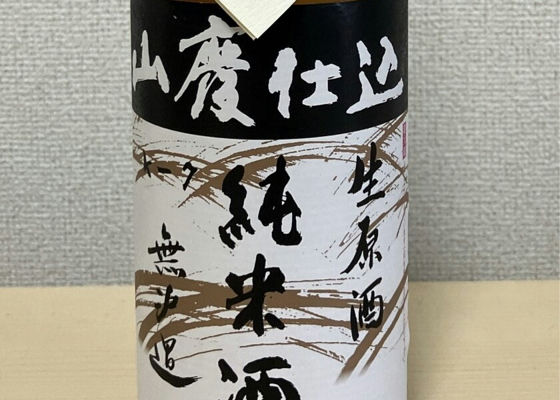 山廃仕込
生原酒
純米酒
無ろ過